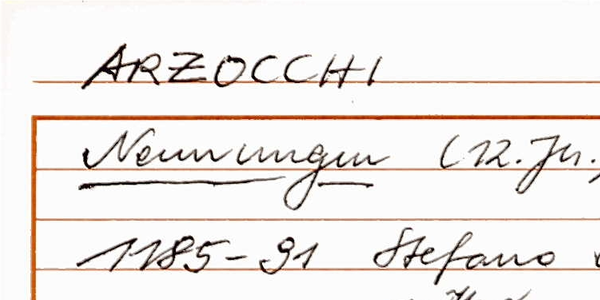 ARZOCCHI
Nennungen (12. Jh.
1185-91 Stefano